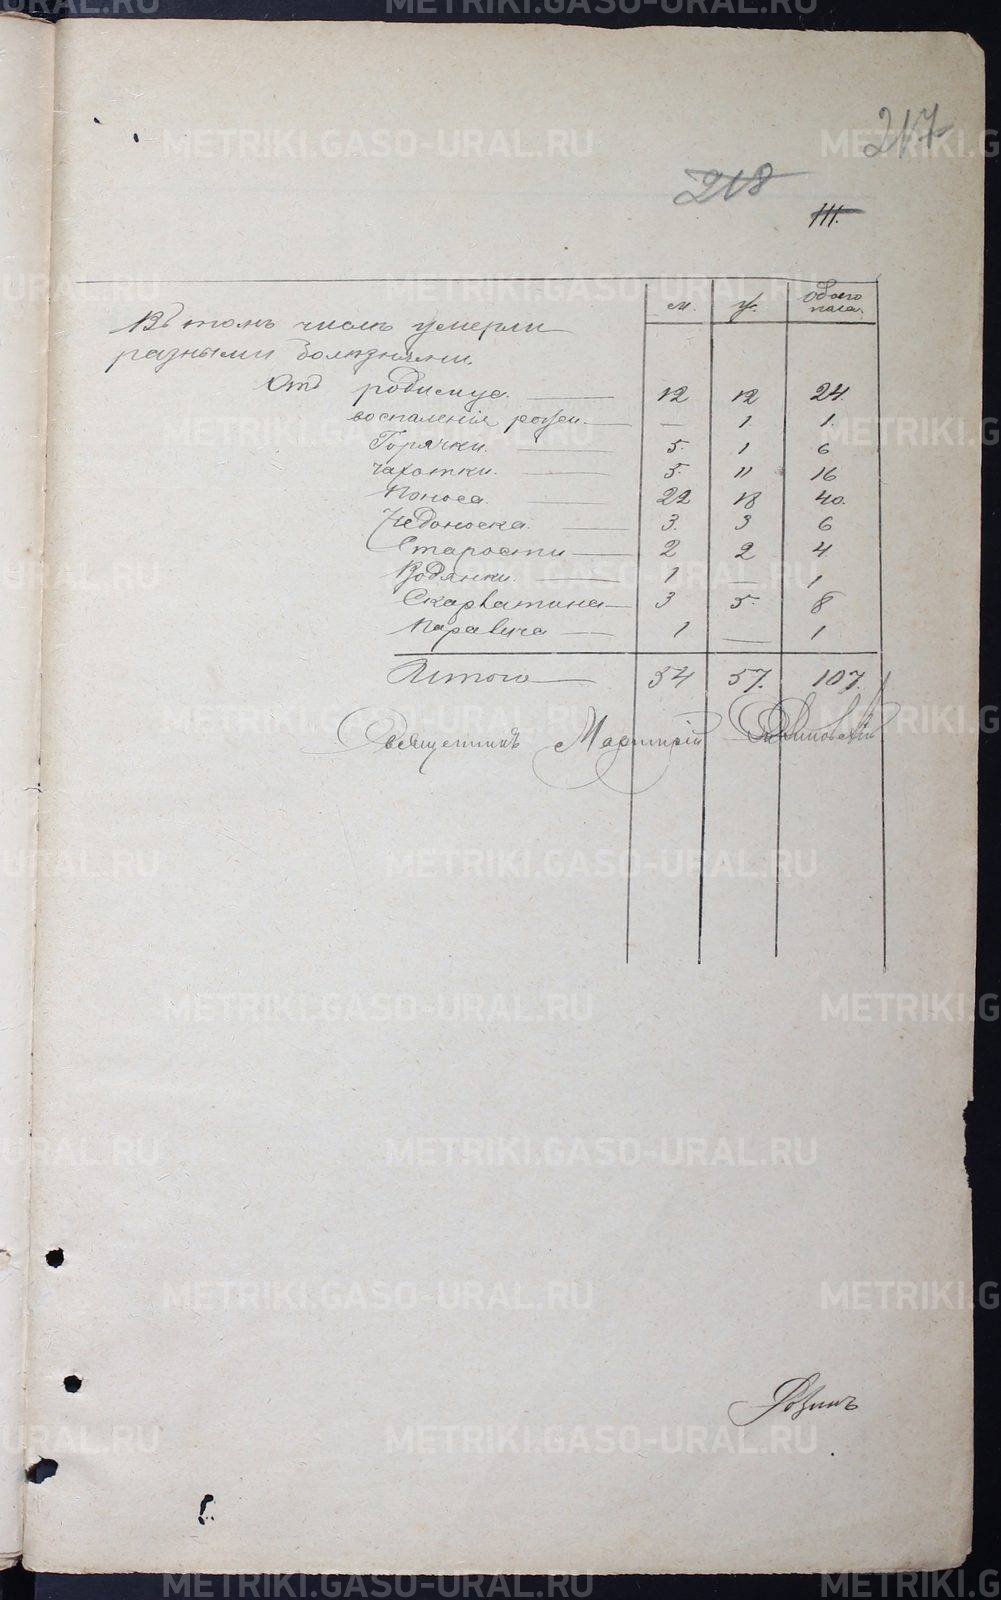 217
218
111.
м. ж. Обоего пола.
Въ томъ числѣ умерли
разными болѣзнями.
Отъ родимца. 12 12 24.
воспаленія рожи. — 1 1.
Горячки. 5. 1 6
Чахотки. 5. 11 16
Поноса. 22 18 40.
Недоноска. 3. 3 6
Старости 2 2 4
Водянки. 1 — 1
Скарлатина 3 5. 8
Паралича 1 — 1
Итого 54 57. 107.
Священникъ
METRIKI.GASO-URAL.RU